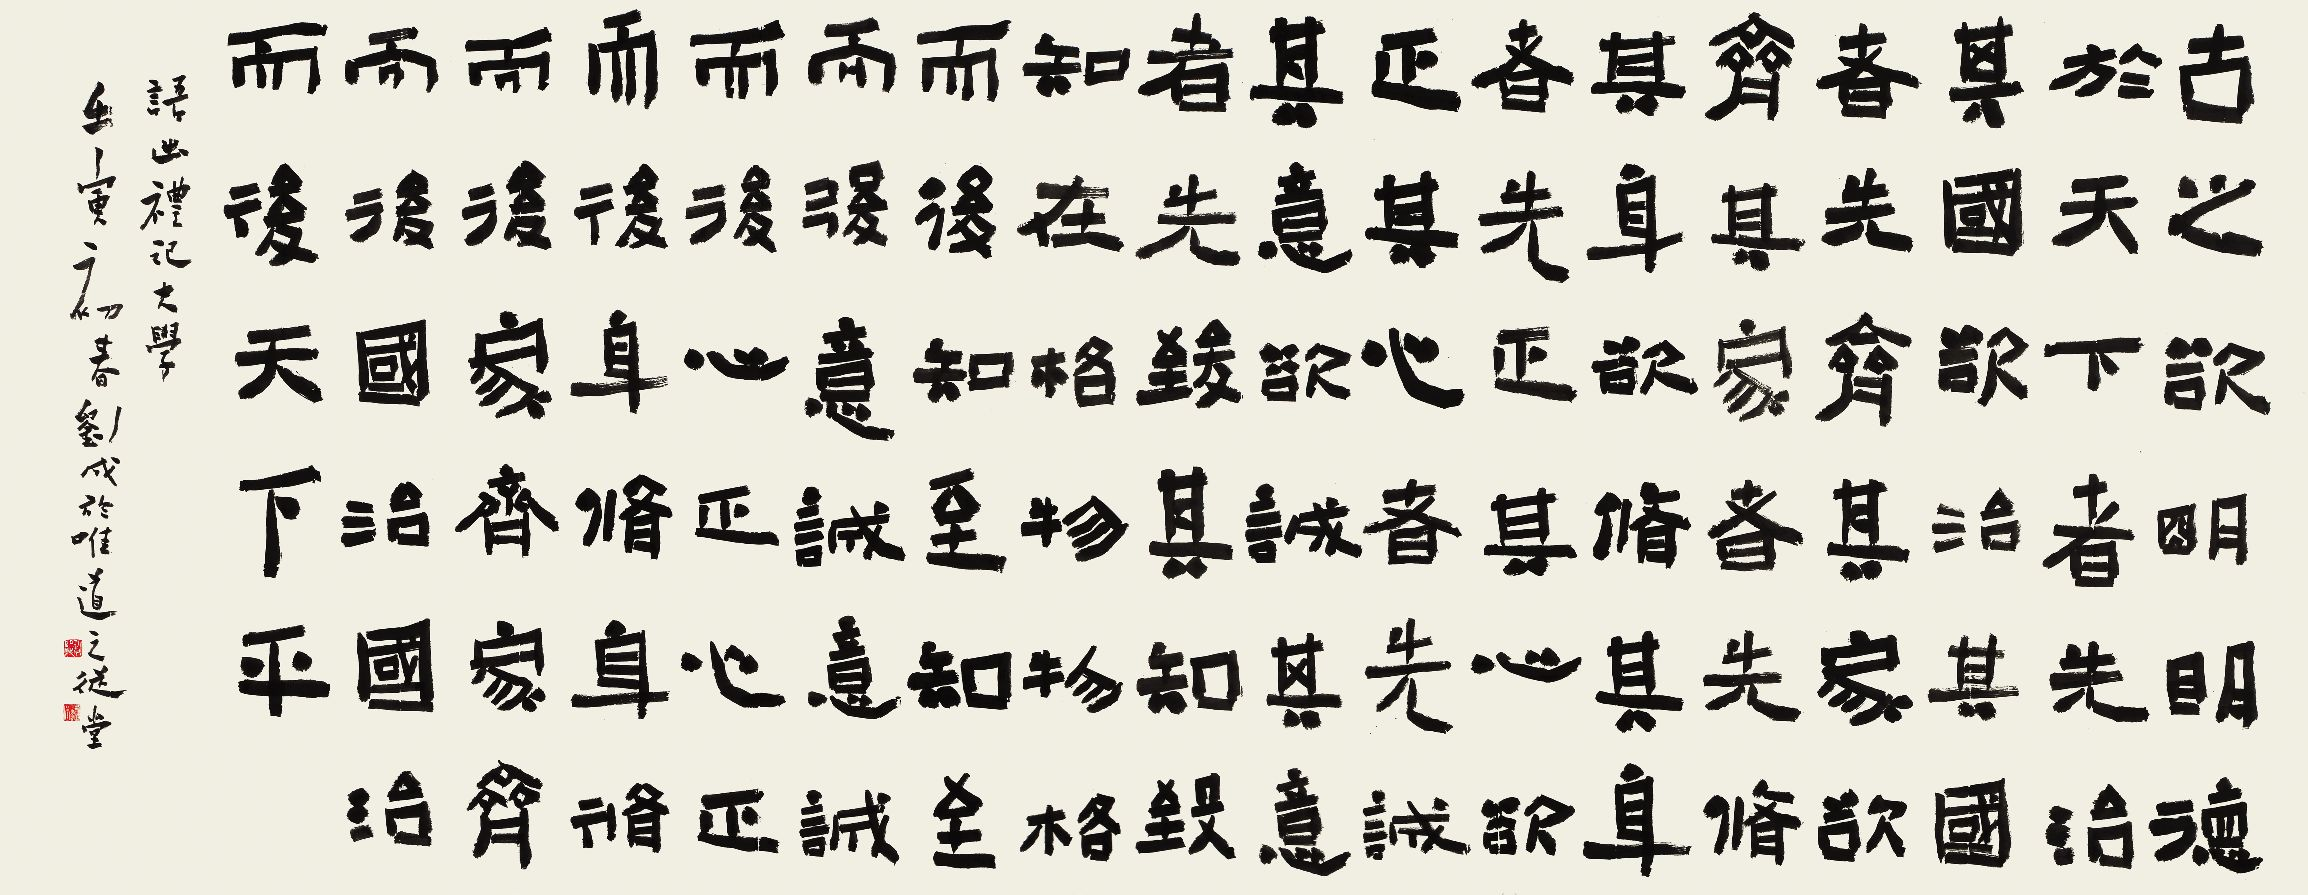 古之欲明明德
於天下者先治
其國欲治其國
者先齊其家欲
齊其家者先脩
其身欲脩其身
者先正其心欲
正其心者先誠
其意欲誠其意
者先致其知致
知在格物物格
而後知至知至
而後意誠意誠
而後心正心正
而後身脩身脩
而後家齊家齊
而後國治國治
而後天下平
語出禮記大學
壬寅之初春劉成於唯道之從堂